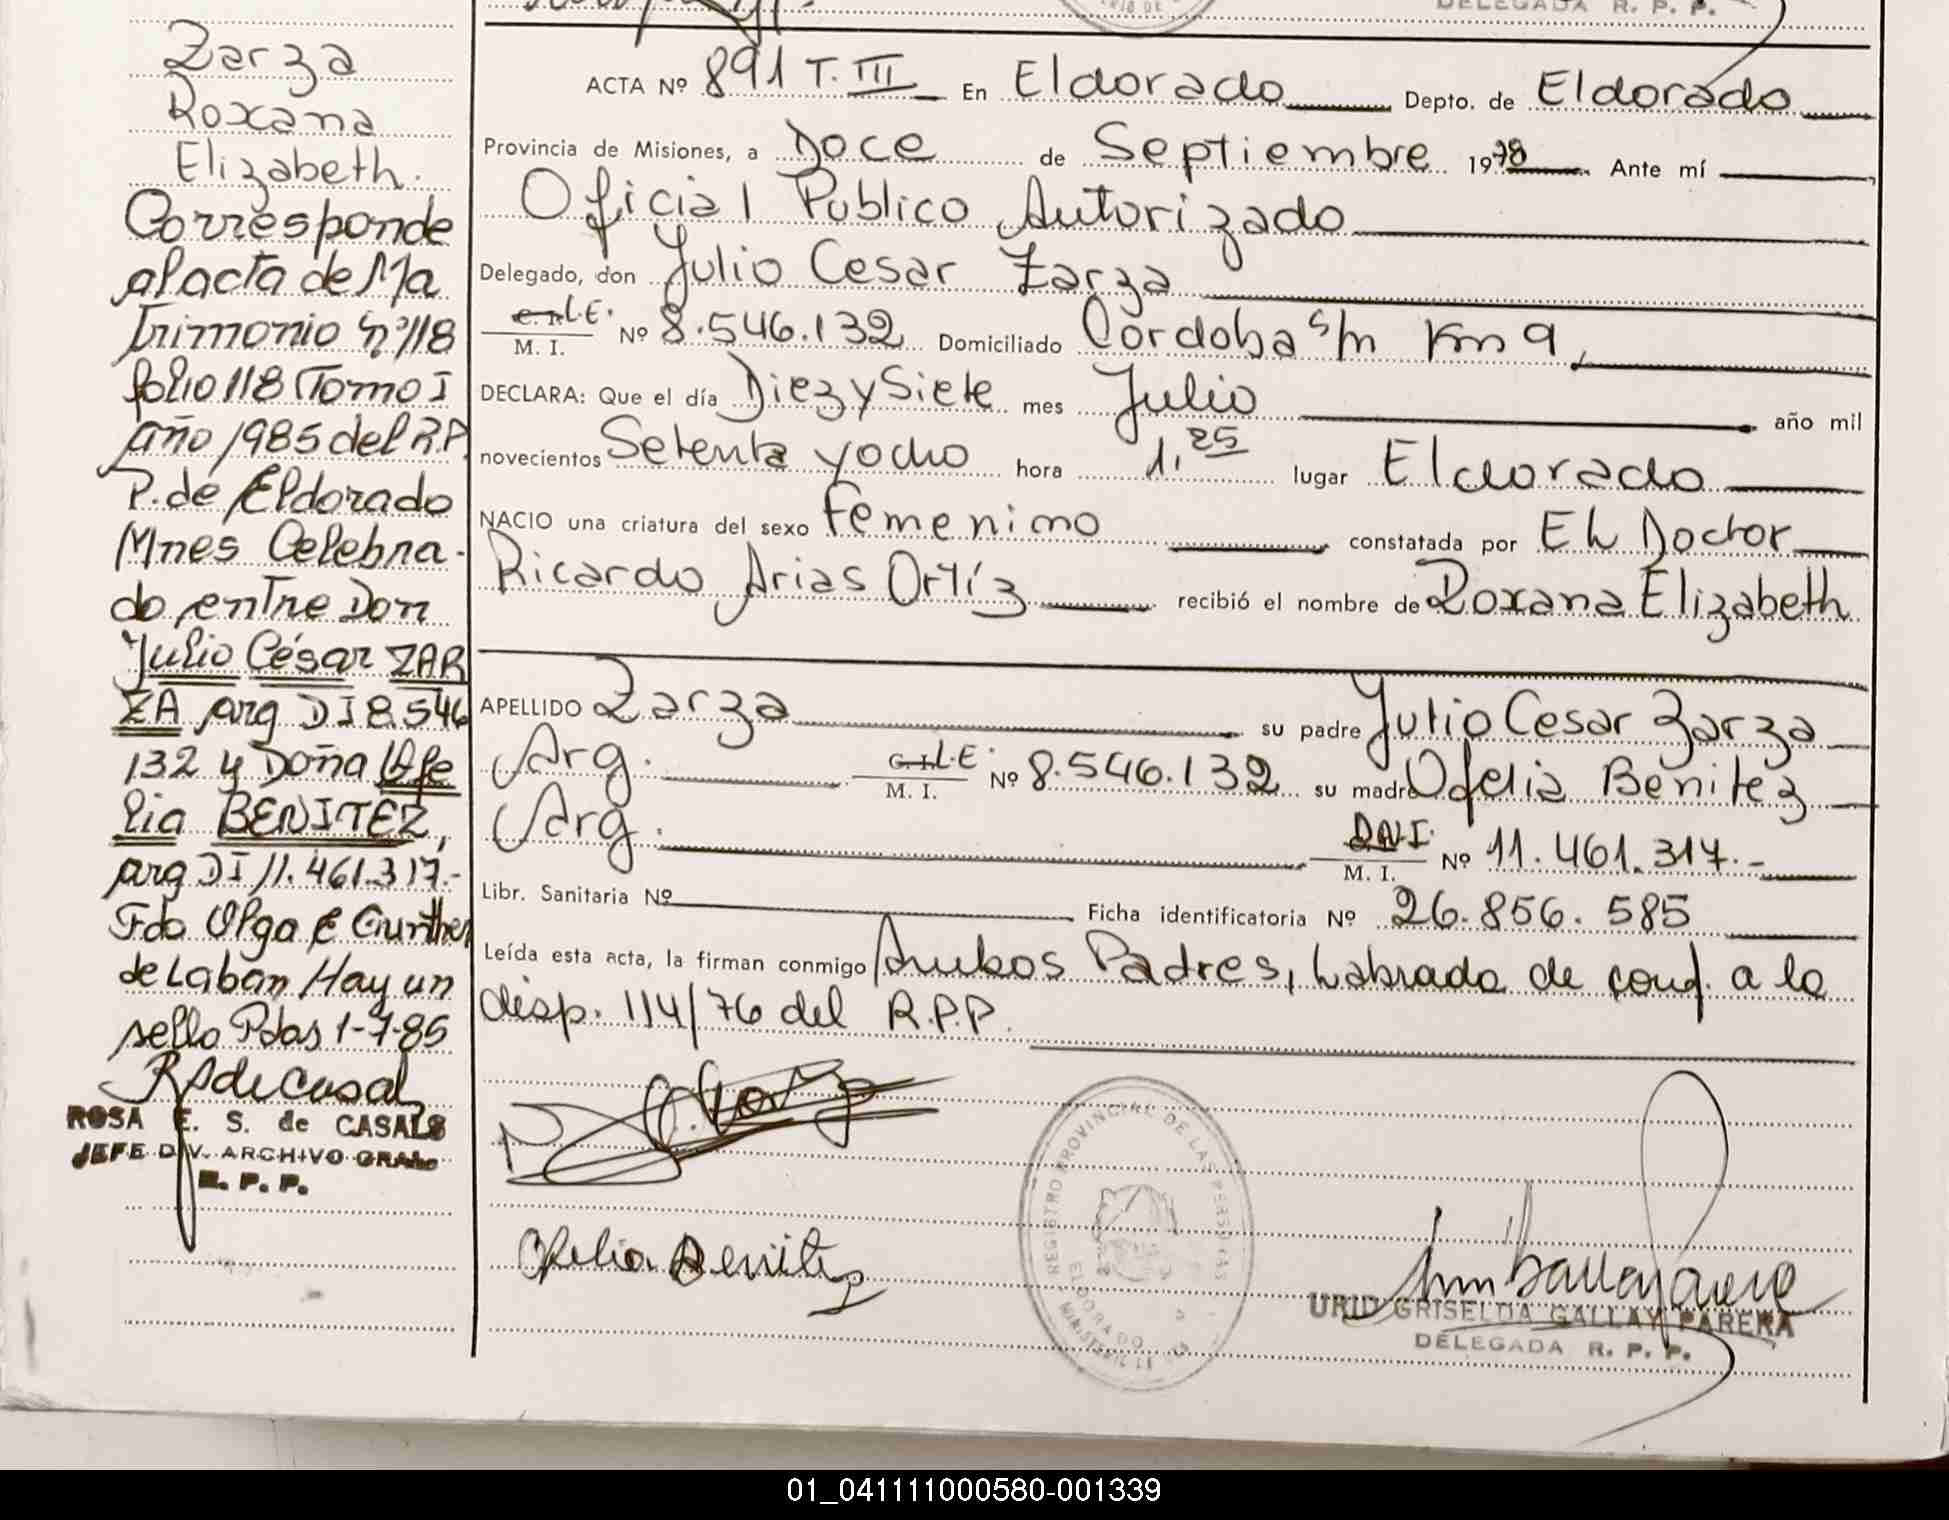 DELEGADA R. P. P.
Zarza
Roxana
Elizabeth.
Corresponde
al acta de Ma
trimonio nº 118
folio 118 Tomo I
año 1985 del R.P.
P. de Eldorado
Mnes Celebra-
do entre Don
Julio César ZAR
ZA arg DI 8.546
132 y Doña Ofe
lia BENITEZ,
arg DI 11.461.317.-
Fdo Olga E Gunther
de Laban Hay un
sello Pdas 1-7-85
ROSA E. S. de CASALS
JEFE DIV. ARCHIVO GRAL
R. P. P.
ACTA Nº 891 T. III En Eldorado Depto. de Eldorado
Provincia de Misiones, a Doce de Septiembre 1978 Ante mí
Oficial Publico Autorizado
Delegado, don Julio Cesar Zarza
L.E. M. I. Nº 8.546.132 Domiciliado Cordoba s/n Km 9,
DECLARA: Que el día Diez y Siete mes Julio año mil
novecientos Setenta y ocho hora 1,25 lugar Eldorado
NACIO una criatura del sexo Femenino constatada por El Doctor
Ricardo Arias Ortíz recibió el nombre de Roxana Elizabeth
APELLIDO Zarza su padre Julio Cesar Zarza
Arg. L.E. M. I. Nº 8.546.132 su madre Ofelia Benitez
Arg. D.N.I. M. I. Nº 11.461.317.-
Libr. Sanitaria Nº Ficha identificatoria Nº 26.856.585
Leída esta acta, la firman conmigo Ambos Padres, Labrada de conf. a la
disp. 114/76 del R.P.P.
Ofelia Benitez
REGISTRO PROVINCIAL DE LAS PERSONAS
ELDORADO
URID GRISELDA GALLAY PARERA
DELEGADA R. P. P.
01_041111000580-001339